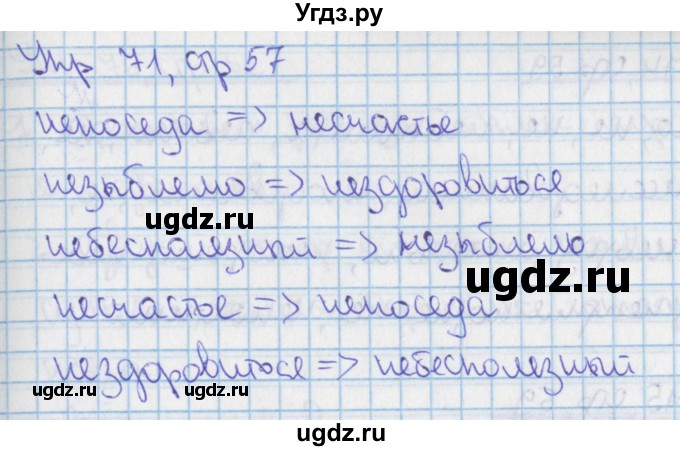 Угдз.ру
Упр 71, стр 57
непоседа => несчастье
незыблемо => нездоровиться
ugdz.ru
небесполезный => незыблемо
ugdz.ru
несчастье => непоседа
нездоровиться => небесполезный
ugdz.ru
ugdz.ru
ugdz.ru